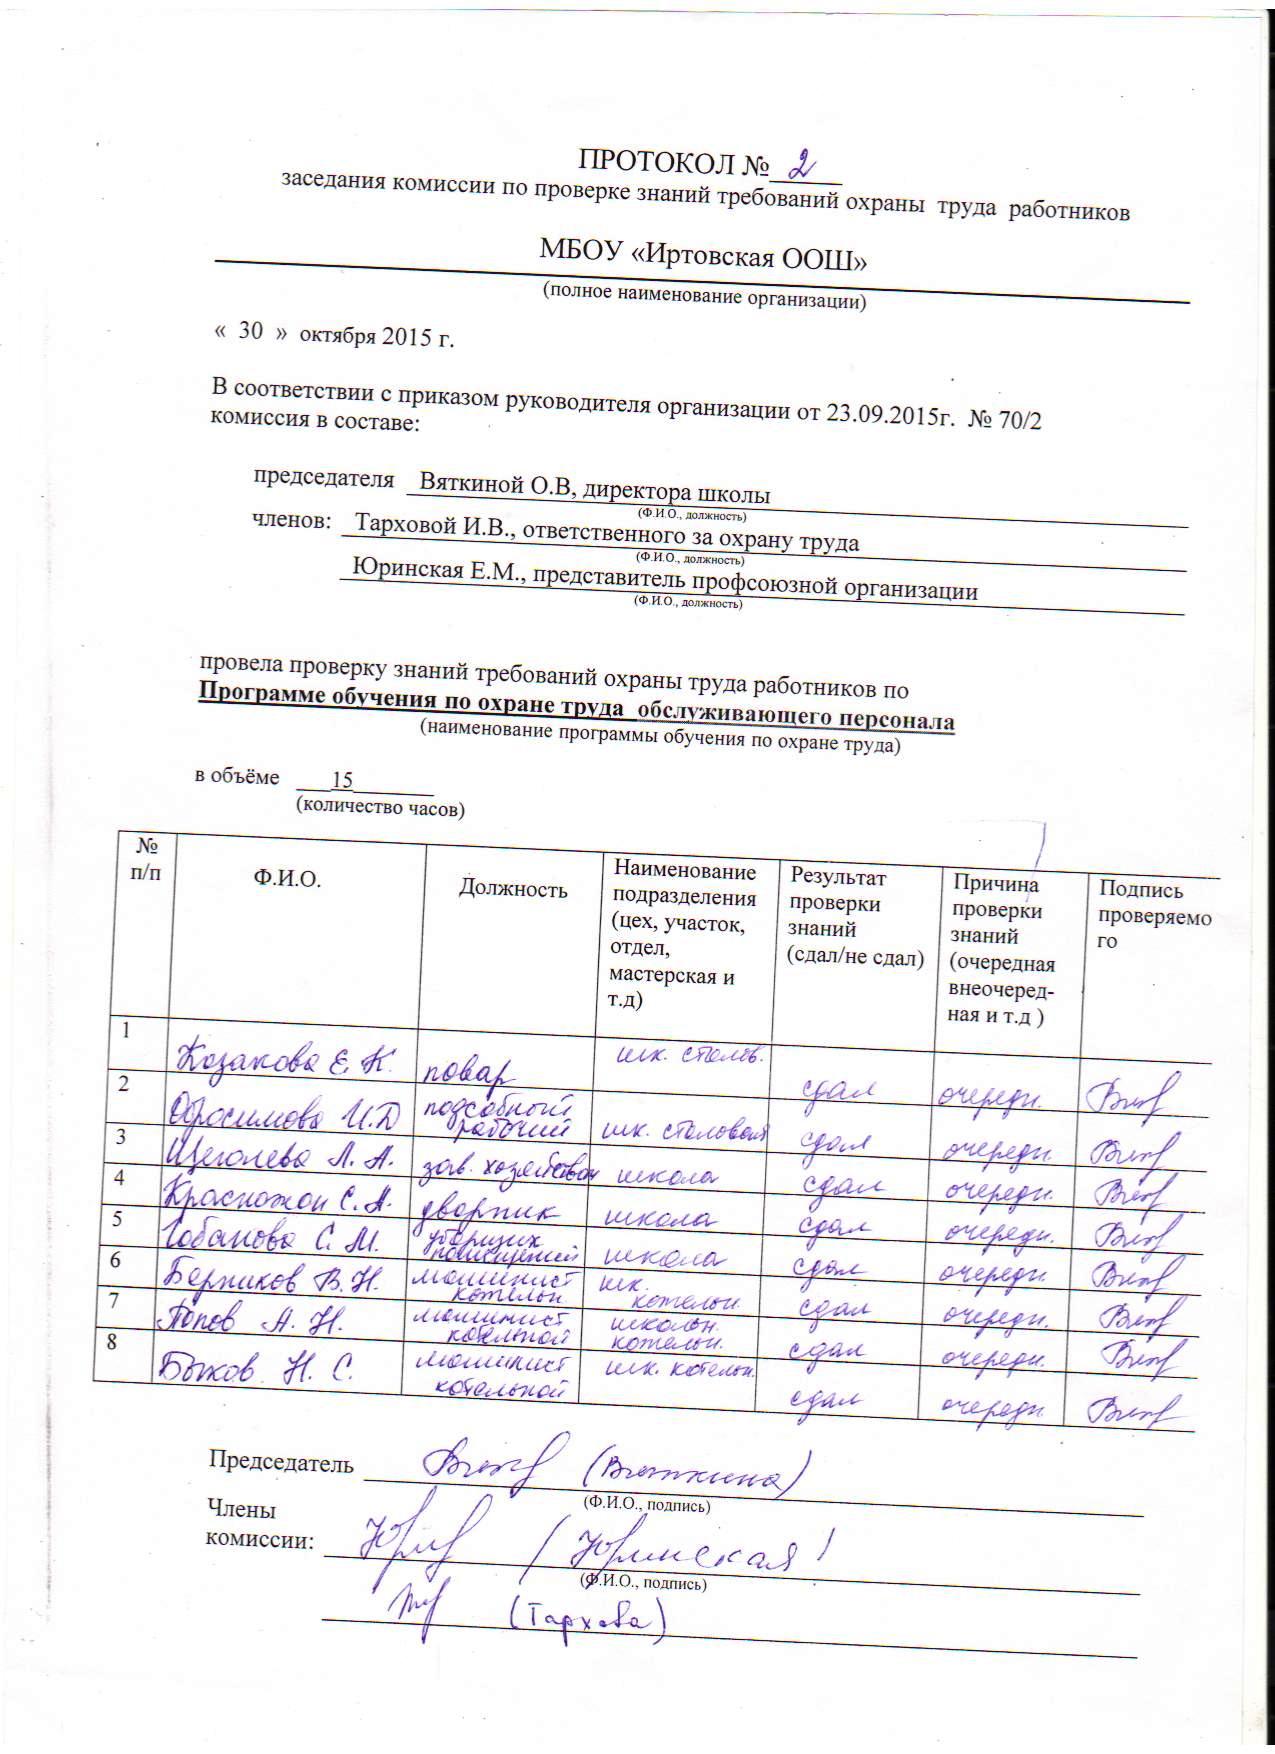 ПРОТОКОЛ № 2
заседания комиссии по проверке знаний требований охраны труда работников
МБОУ «Иртовская ООШ»
(полное наименование организации)
« 30 » октября 2015 г.
В соответствии с приказом руководителя организации от 23.09.2015г. № 70/2
комиссия в составе:
председателя Вяткиной О.В, директора школы
(Ф.И.О., должность)
членов: Тарховой И.В., ответственного за охрану труда
(Ф.И.О., должность)
Юринская Е.М., представитель профсоюзной организации
(Ф.И.О., должность)
провела проверку знаний требований охраны труда работников по
Программе обучения по охране труда обслуживающего персонала
(наименование программы обучения по охране труда)
в объёме 15
(количество часов)
№ п/п Ф.И.О. Должность Наименование подразделения (цех, участок, отдел, мастерская и т.д) Результат проверки знаний (сдал/не сдал) Причина проверки знаний (очередная внеочеред-ная и т.д ) Подпись проверяемо го
1 Козакова Е. К. повар шк. столов. сдал очередн.
2 Обросимова И.Д подсобный рабочий шк. столовая сдал очередн.
3 Щеголева Л. А. зав. хозяйством школа сдал очередн.
4 Красножон С. А. дворник школа сдал очередн.
5 Лобанова С. М. уборщик помещений школа сдал очередн.
6 Берников В. Н. машинист котельн. шк. котельн. сдал очередн.
7 Попов А. Н. машинист котельной школьн. котельн. сдал очередн.
8 Быков Н. С. машинист котельной шк. котельн. сдал очередн.
Председатель (Вяткина)
(Ф.И.О., подпись)
Члены
комиссии: (Юринская)
(Ф.И.О., подпись)
(Тархова)